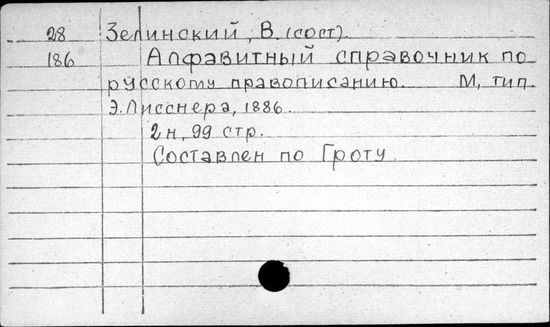 28 Зелинский, В. (сост).
186 Алфавитный справочник по
русскому правописанию. М, тип.
Э. Лисснера, 1886.
2н, 99 стр.
Составлен по Гроту.